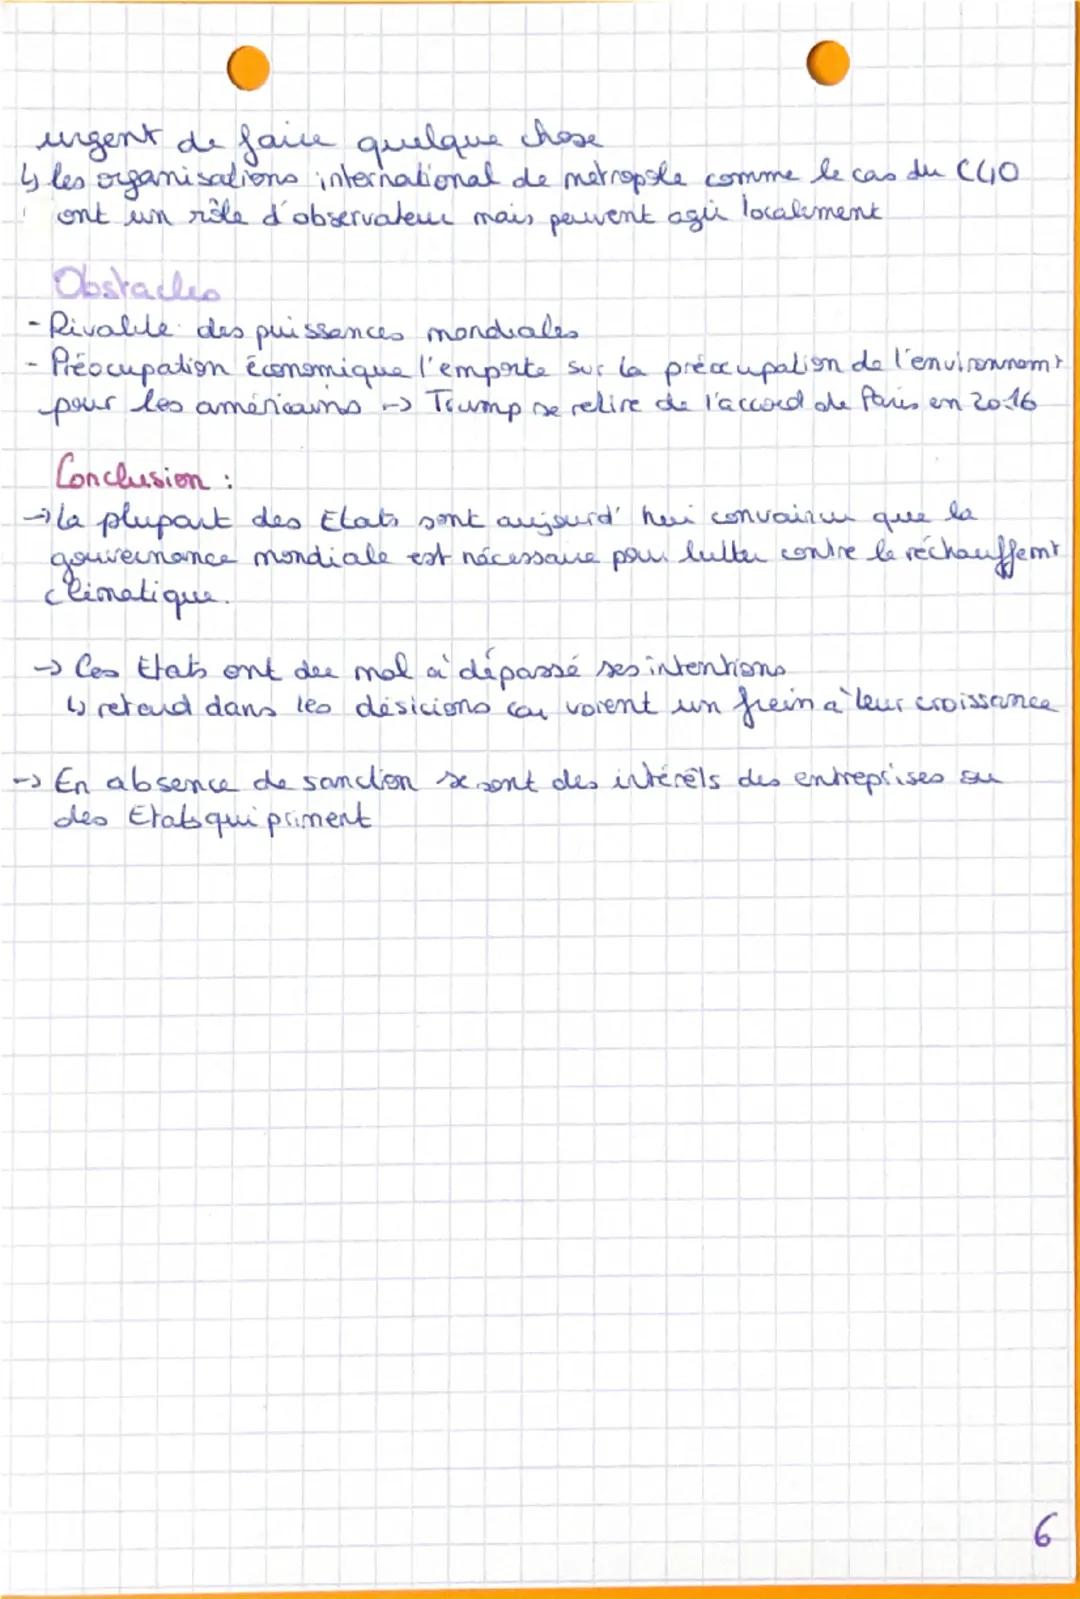 urgent de faire quelque chose
↳ les organisations international de métropole comme le cas du C40
ont un rôle d'observateur mais peuvent agir localement
Obstacles
- Rivalité des puissances mondiales
- Préocupation économique l'emporte sur la préocupation de l'environnemt
pour les américains -> Trump se retire de l'accord de Paris en 2016
Conclusion :
-> La plupart des Etats sont aujourd'hui convaincu que la
gouvernance mondiale est nécessaire pour lutter contre le réchauffemt
climatique.
-> Ces Etats ont du mal à dépassé ses intentions
↳ retard dans les désicions car voient un frein à leur croissance
-> En absence de sanction se sont des intérêts des entreprises ou
des Etats qui priment
6